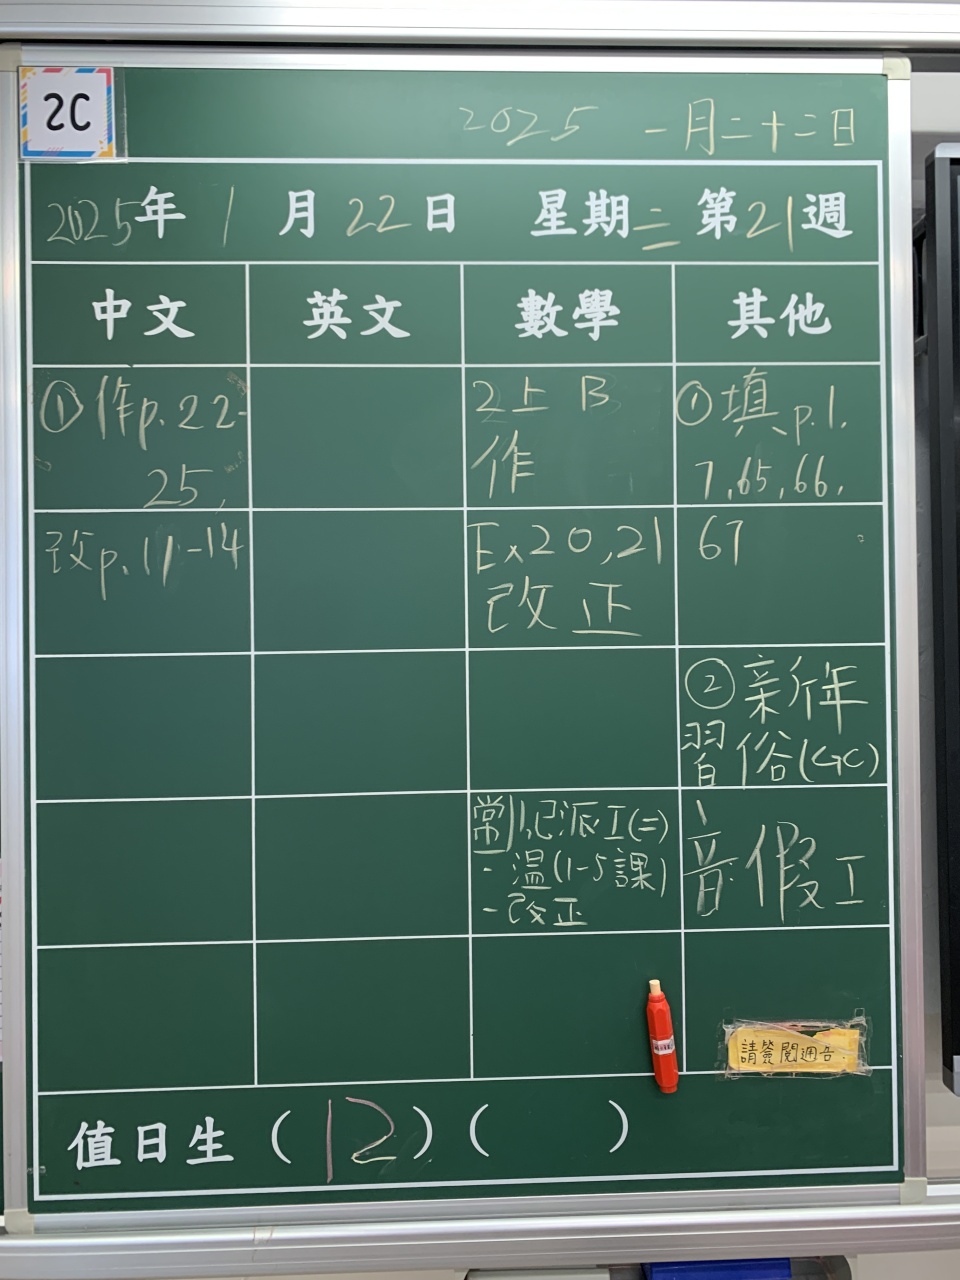 2C
2025 一月二十二日
2025年1月22日 星期三 第21週
中文 英文 數學 其他
①作p.22-
25,
改p.11-14
2上B
作
Ex20,21
改正
常
派工(二)
-温(1-5課)
-改正
①填p.1.
7,65,66,
67
②新年
習俗(GC)
音假工
請簽閱週告.
值日生(12)( )